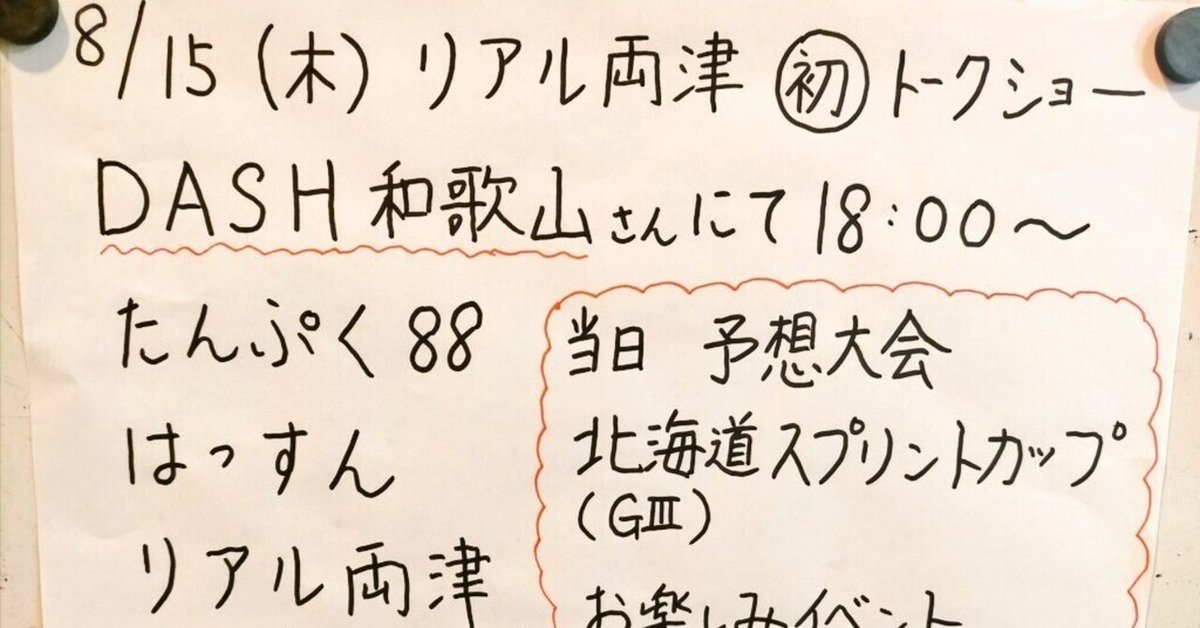 8/15(木) リアル両津 ㊗初 トークショー
DASH 和歌山さんにて 18:00〜
たんぷく88
はっすん
リアル両津
当日 予想大会
北海道スプリントカップ
(GⅢ)
お楽しみイベント